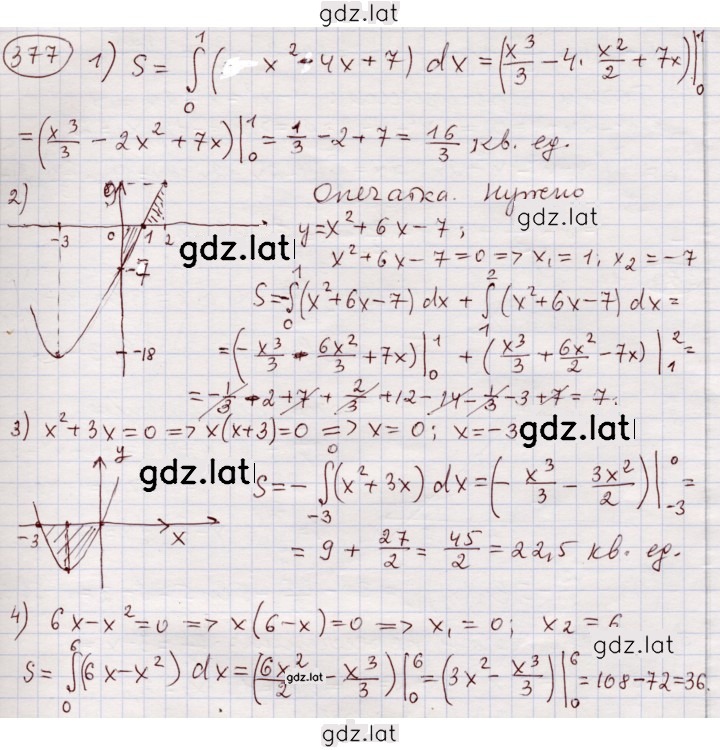 gdz.lat
377 1) S = ∫₀¹ ( x² - 4x + 7) dx = (x³/3 - 4 · x²/2 + 7x)|₀¹
= (x³/3 - 2x² + 7x)|₀¹ = 1/3 - 2 + 7 = 16/3 кв. ед.
2) y Опечатка. Нужно
gdz.lat
-3 0 1 2 y = x² + 6x - 7;
gdz.lat
x² + 6x - 7 = 0 => x₁ = 1; x₂ = -7
-7 S = -∫₀¹ (x² + 6x - 7) dx + ∫₁² (x² + 6x - 7) dx =
-18 = (-x³/3 - 6x²/2 + 7x)|₀¹ + (x³/3 + 6x²/2 - 7x)|₁² =
3) x² + 3x = 0 => x(x+3) = 0 => x = 0; x = -3
gdz.lat
y
gdz.lat
S = -∫₋₃⁰ (x² + 3x) dx = (- x³/3 - 3x²/2)|₋₃⁰ =
-3 x
= 9 + 27/2 = 45/2 = 22,5 кв. ед.
4) 6x - x² = 0 => x(6 - x) = 0 => x₁ = 0; x₂ = 6
gdz.lat
S = ∫₀⁶ (6x - x²) dx = (6x²/2 - x³/3)|₀⁶ = (3x² - x³/3)|₀⁶ = 108 - 72 = 36.
gdz.lat
gdz.lat